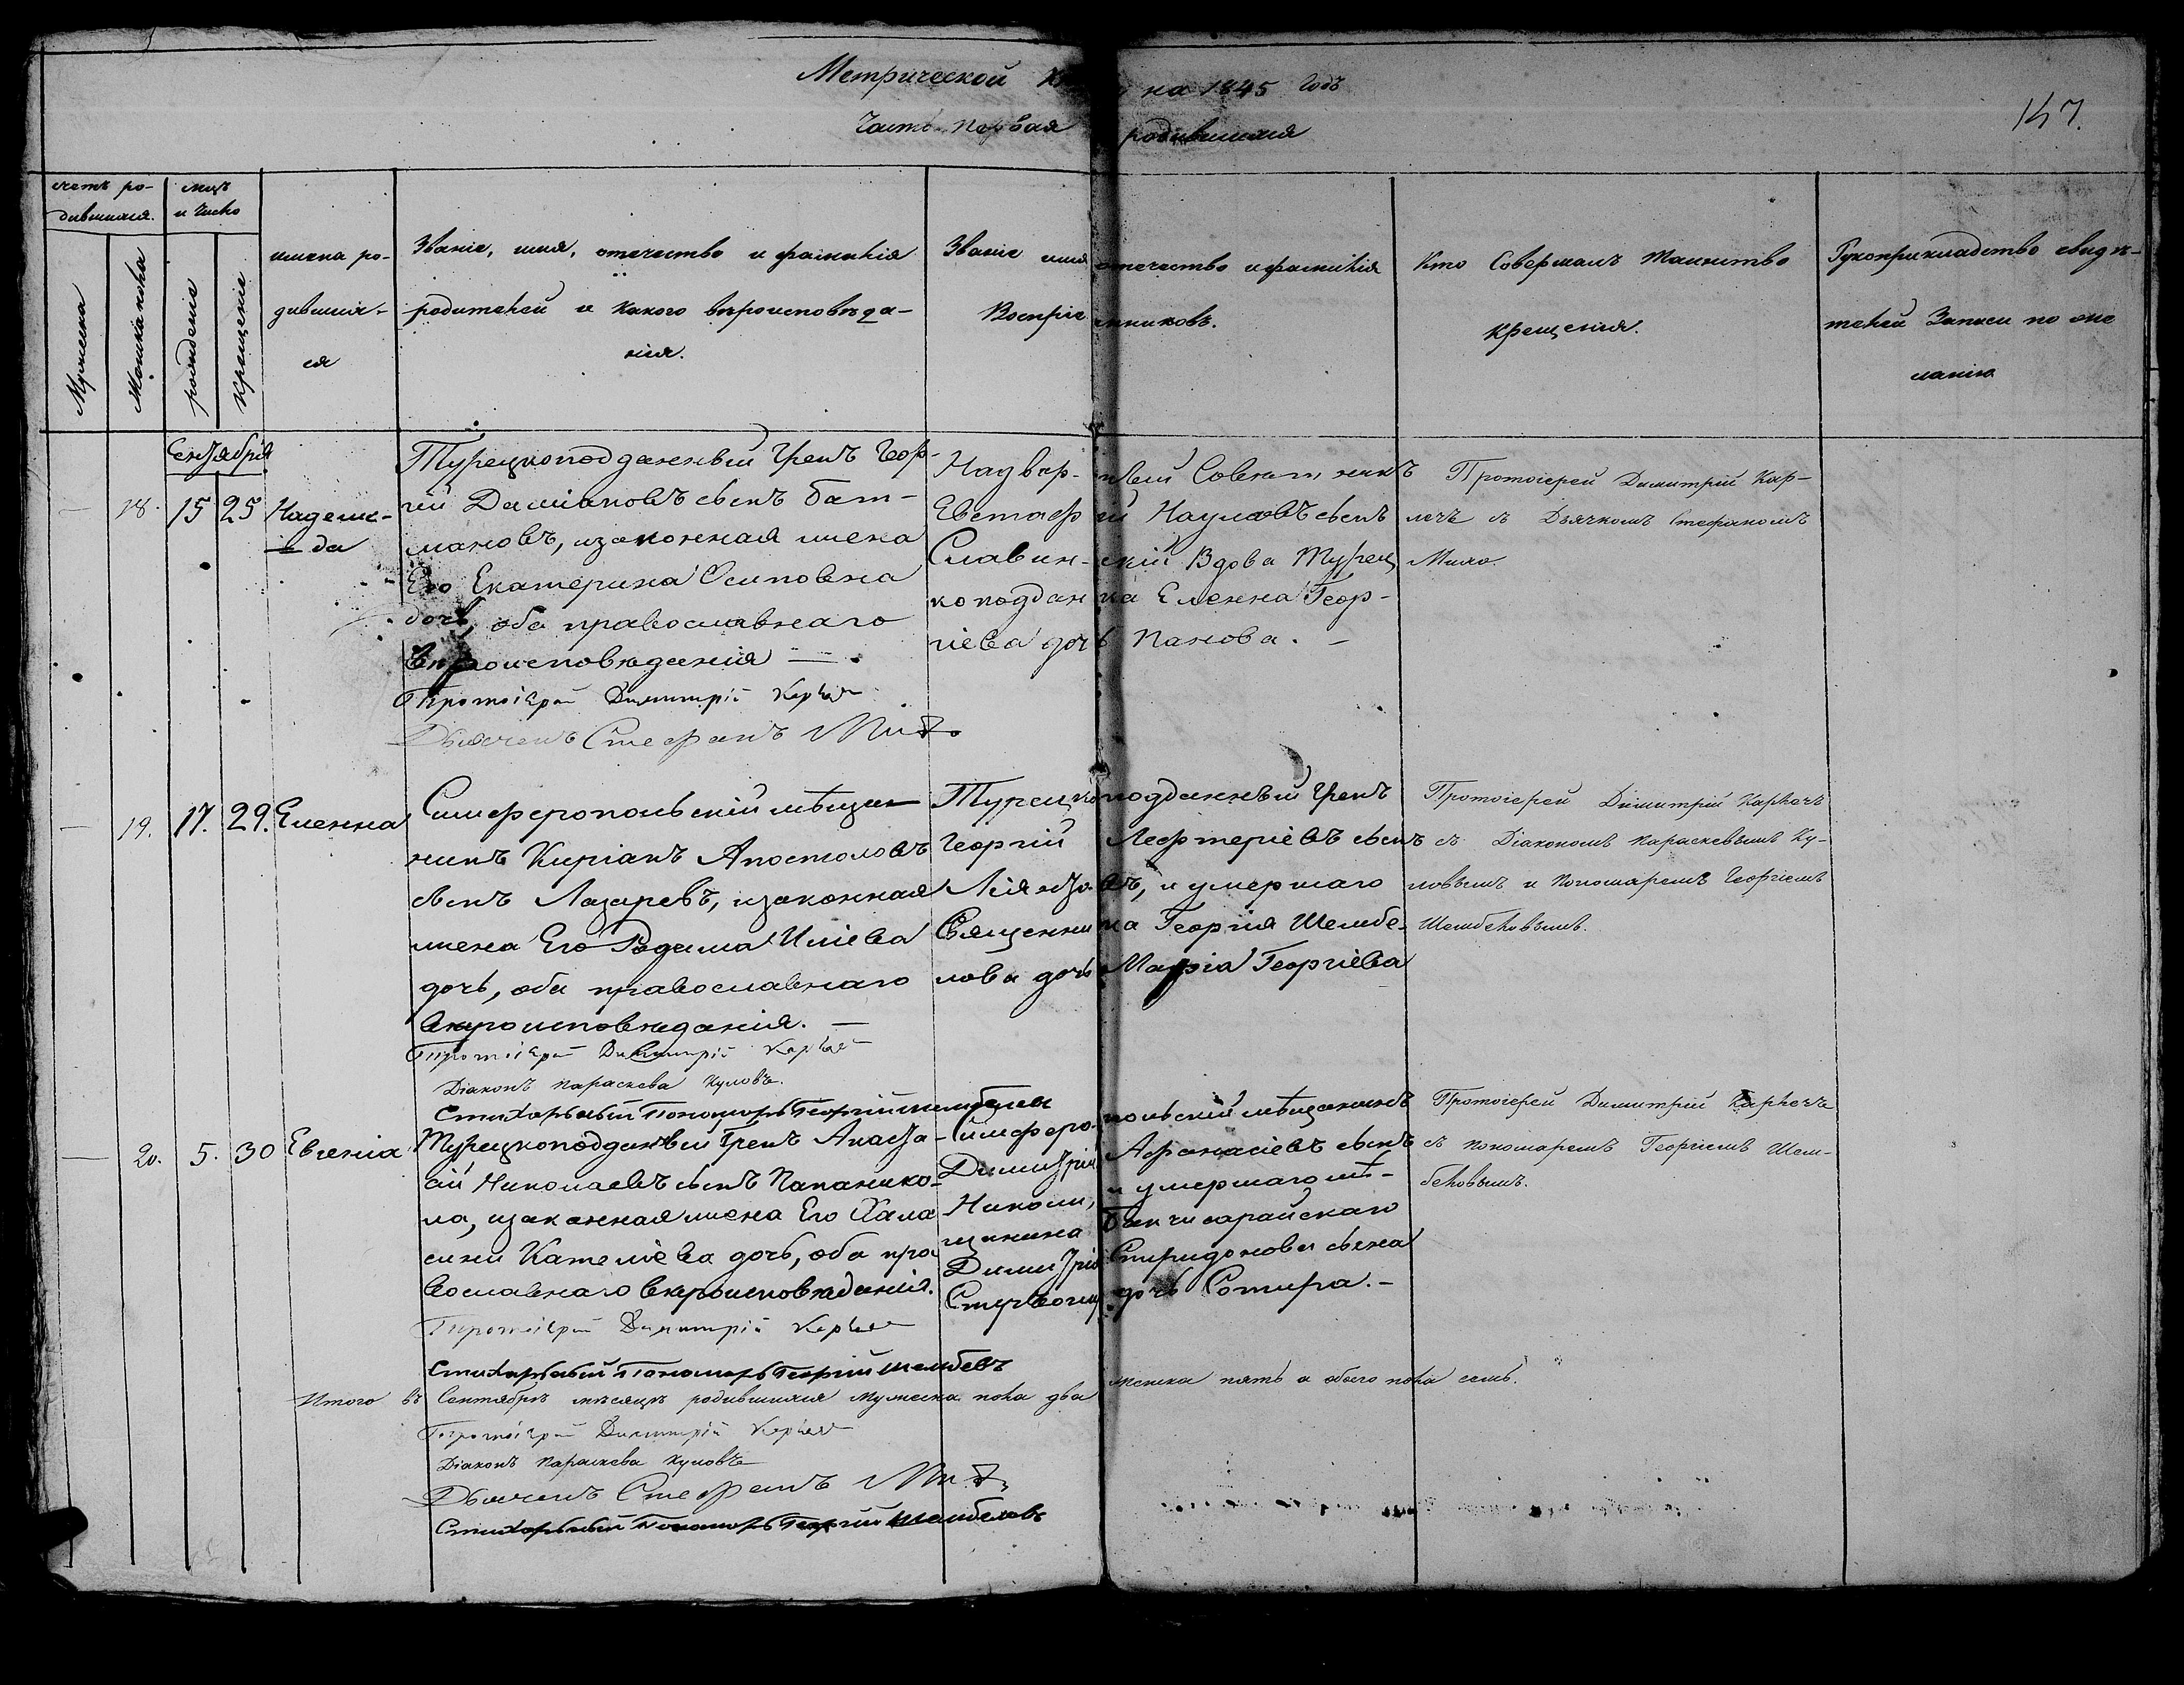 Метрической Книги на 1845 годъ
Часть первая родившихся
147.
счетъ ро-
дившихся.
мцъ
и число
Мужеска
Женска пола
рожденія
Крещеніе
имена ро-
дивших-
ся
Званіе, имя, отечество и фамилія
родителей и какого вѣроисповѣда-
нія.
Званіе имя отечество и фамилія
Воспріемниковъ.
Кто Совершалъ Таинство
Крещенія.
Рукоприкладство свидѣ-
телей Записи по же
ланію
Сентября
— 18. 15 25 Надеж-
да
Турецкоподданный Грекъ Геор-
гій Даміановъ сынъ Бат-
мановъ, изаконная жена
Его Екатерина Осиповна
дочь, оба православнаго
вѣроисповѣданія —.
Протоіерей Димитрій
Дьячекъ Стефанъ
Надвор-ный Совѣтникъ
Евстафій Наумовъ сынъ
Славинскій Вдова Турец
коподданна Еленна Геор-
гіева дочь Панова. —
Протоіерей Димитрій Кар-
лечъ съ Дьячкомъ Стефаномъ
— 19. 17. 29. Еленна
Симферопольскій мѣщан
нинъ Киріакъ Апостоловъ
сынъ Лазаревъ, изаконная
жена Его Иліева
дочь, оба православнаго
вѣроисповѣданія. —
Протоіерей Димитрій
Діаконъ Параскева Куловъ.
Стихарный Пономарь Георгій Шембелы
Турецкоподданный Грекъ
Георгій Лефтеріевъ сынъ
и умершаго
Священника Георгія Шембе-
лова дочь Марія Георгіева
Протоіерей Димитрій Карлечъ
съ Діакономъ Параскевымъ Ку-
ловымъ и Пономаремъ Георгіемъ
Шембеловымъ.
— 20. 5. 30 Евгенія
Турецкоподданный Грекъ Анаста-
сій Николаевъ сынъ Папанико-
ла, изаконная жена Его
дочь, оба пра
вославнаго вѣроисповѣданія.
Протоіерей Димитрій
Стихарный Пономарь Георгій Шембевъ
Симферопольскій мѣщанинъ
Димитрій Афанасіевъ сынъ
Николи, и умершаго мѣ-
щанина Бакчисарайскаго
Димитрія Спиридонова сына
дочь Сотира. —
Протоіерей Димитрій Карлечъ
съ пономаремъ Георгіемъ Шем-
беловымъ.
Итого въ Сентябрѣ мѣсяцѣ родившихся мужеска пола два женска пять а обоего пола семь.
Протоіерей Димитрій
Діаконъ Параскева Куловъ
Дьячекъ Стефанъ
Стихарный Пономарь Георгій Шембеловъ